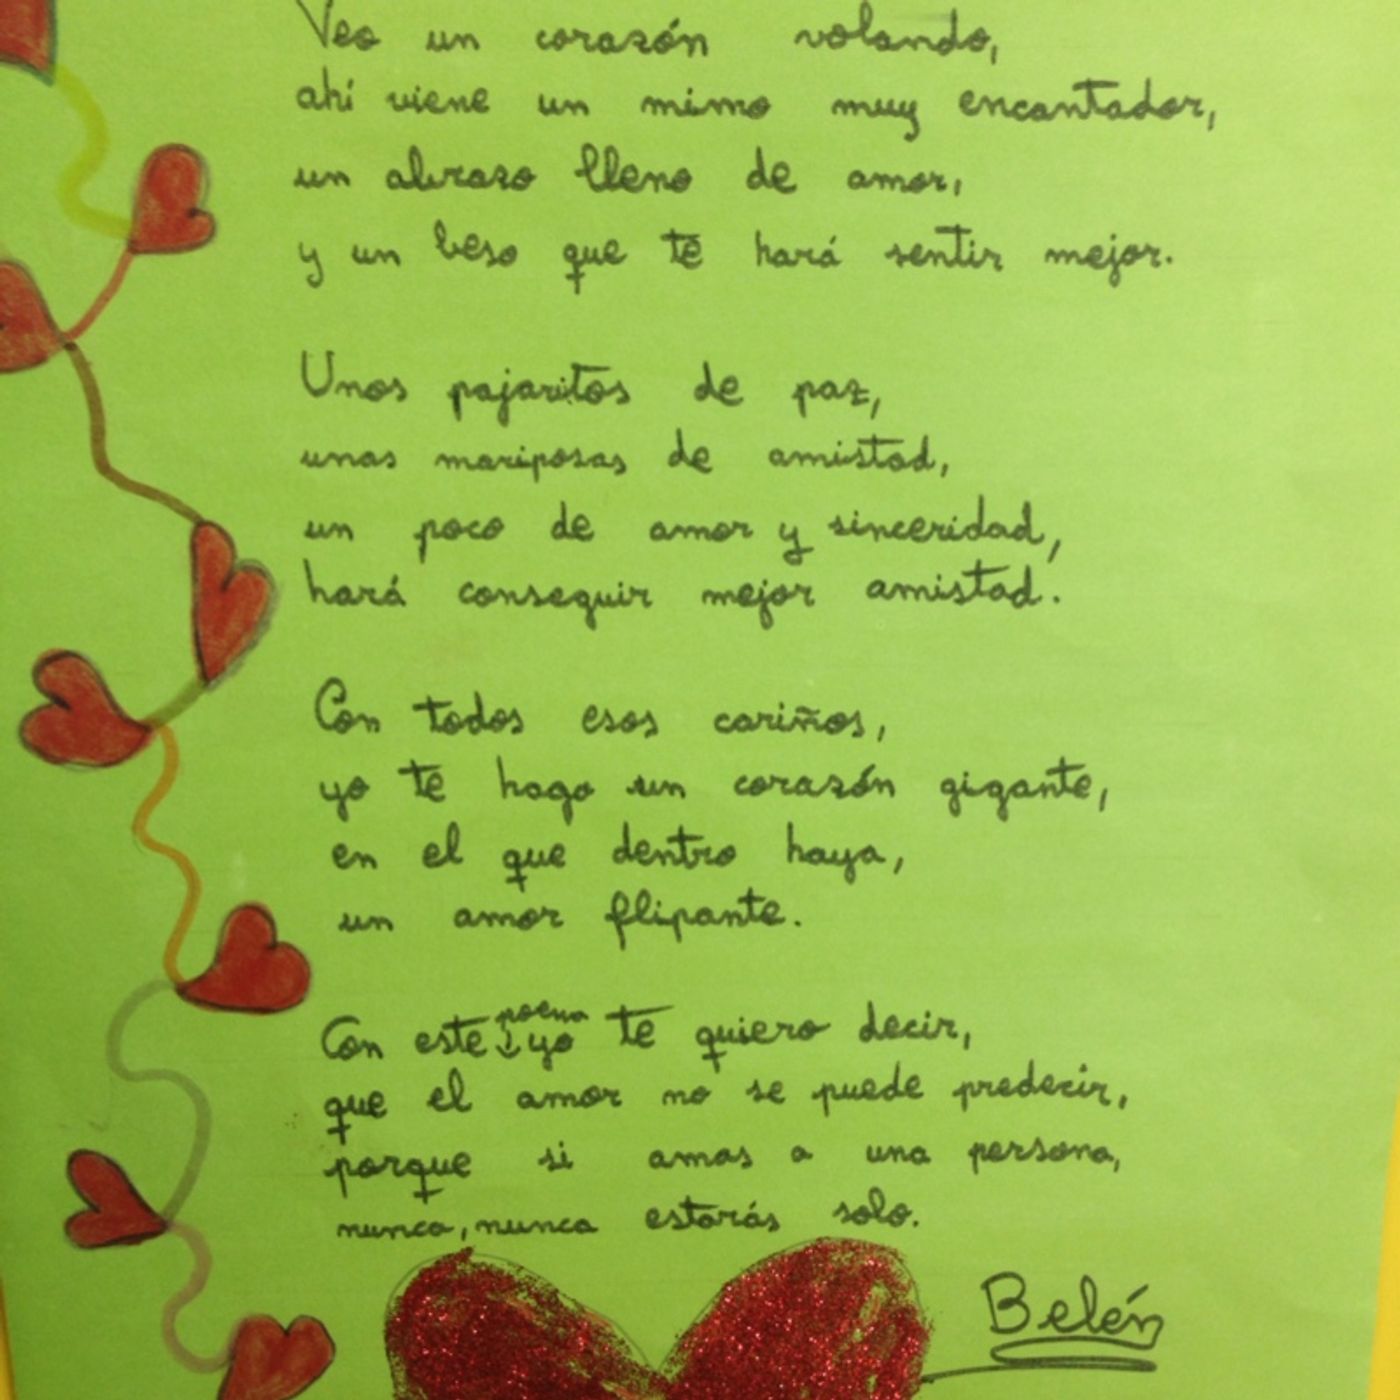 Veo un corazón volando,
ahí viene un mimo muy encantador,
un abrazo lleno de amor,
y un beso que te hará sentir mejor.
Unos pajaritos de paz,
unas mariposas de amistad,
un poco de amor y sinceridad,
hará conseguir mejor amistad.
Con todos esos cariños,
yo te hago un corazón gigante,
en el que dentro haya,
un amor flipante.
Con este poema yo te quiero decir,
que el amor no se puede predecir,
porque si amas a una persona,
nunca, nunca estarás solo.
Belén